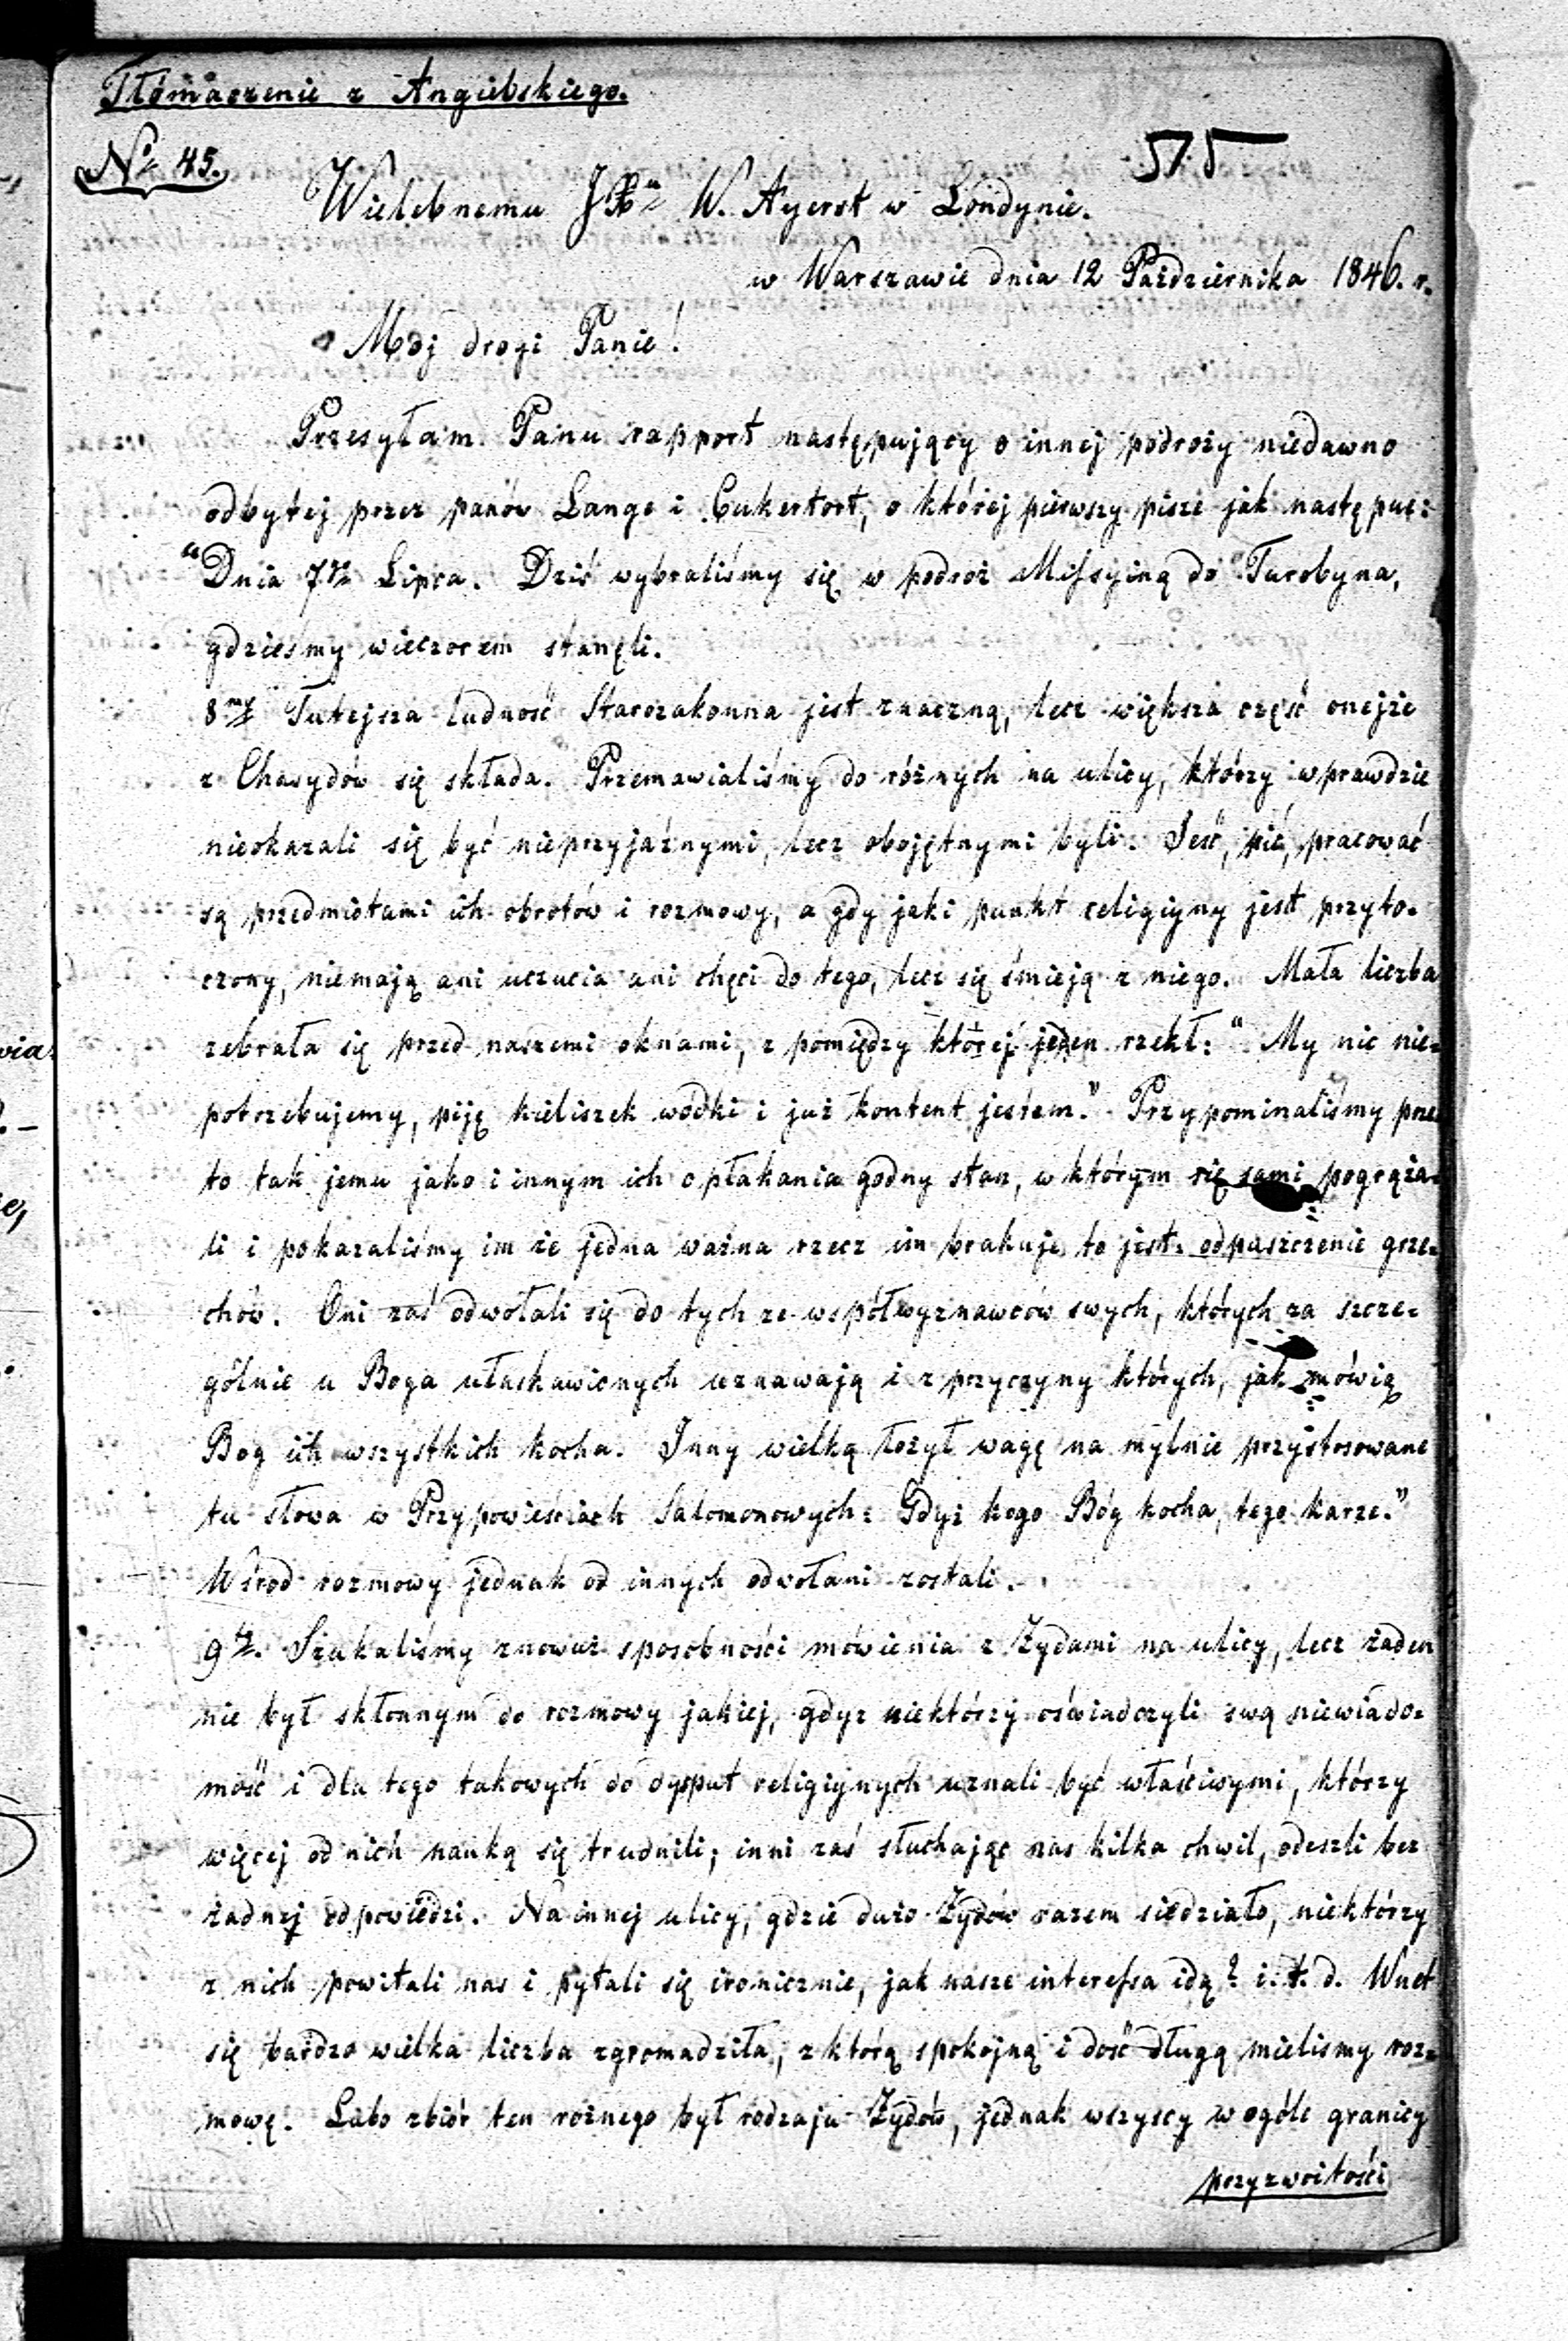 Tłómaczenie z Angielskiego.
No 45.
575
Wielebnemu JXu W. Ayerst w Londynie.
w Warszawie dnia 12 Października 1846. r.
Moj drogi Panie!
Przesyłam Panu rapport następujący o innej podroży niedawno
odbytej przez panów Lange i Cukertort, o której pierwszy pisze jak następuę:
"Dnia 7go Lipca. Dziś wybraliśmy się w podroż Missyiną do Turobyna,
gdzieśmy wieczorem stanęli.
8my Tutejsza ludność Starozakonna jest znaczną, lecz większa część onejże
z Chasydów się składa. Przemawialiśmy do różnych na ulicy, którzy wprawdzie
nieokazali się być nieprzyjaźnymi, lecz obojętnymi byli. Jeść, pić, pracować
są przedmiotami ich obrotów i rozmowy, a gdy jaki punkt religiyny jest przyto-
czony, niemają ani uczucia ani chęci do tego, lecz się śmieją z niego. Mała liczba
zebrała się przed naszemi oknami, z pomiędzy której jeden rzekł: "My nic nie-
potrzebujemy, piję kieliszek wódki i już kontent jestem." Przypominaliśmy prze-
to tak jemu jako i innym ich opłakania godny stan, w którym się sami pogrąża-
li i pokazaliśmy im że jedna ważna rzecz im brakuje, to jest: odpuszczenie grze-
chów. Oni zaś odwołali się do tych ze współwyznawców swych, których za szcze-
gólnie u Boga ułaskawionych uznawają i z przyczyny których, jak mówią
Bog ich wszystkich kocha. Inny wielką łożył wagę na mylnie przystosowane
tu słowa w Przypowieściach Salomonowych: Gdyż kogo Bóg kocha, tego karze."
Wśrod rozmowy jednak od innych odwołani zostali.
9ty. Szukaliśmy znowuż sposobności mówienia z Żydami na ulicy, lecz żaden
nie był skłonnym do rozmowy jakiej, gdyz niektórzy oświadczyli swą niewiado-
mość i dla tego takowych do dysput religiynych uznali być właściwymi, którzy
więcej od nich nauką się trudnili; inni zaś słuchając nas kilka chwil, odeszli bez
żadnej odpowiedzi. Na innej ulicy, gdzie dużo Żydów razem siedziało, niektórzy
z nich powitali nas i pytali się ironicznie, jak nasze interessa idą? i. t. d. Wnet
się bardzo wielka liczba zgromadziła, z którą spokojną i dość długą mielismy roz-
mowę. Lubo zbiór ten rożnego był rodzaju Żydów, jednak wszyscy w ogóle granicy
przyzwoitości